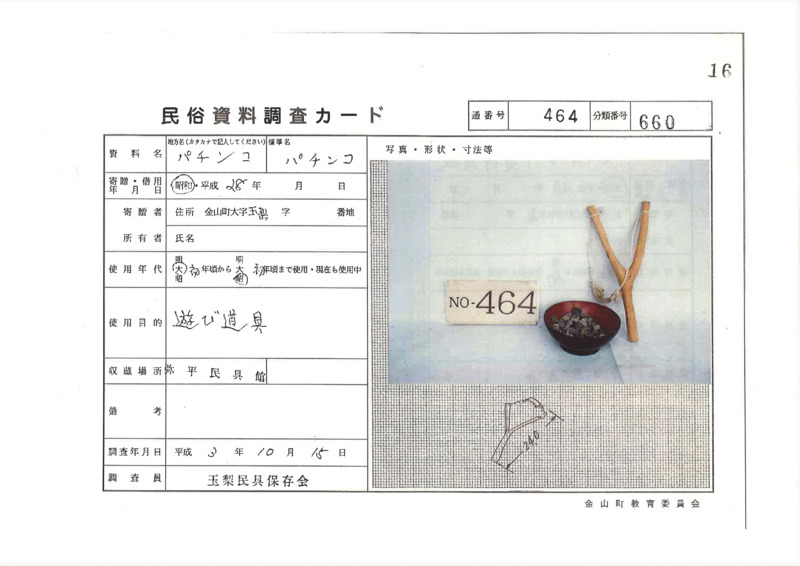 16
民俗資料調査カード
通番号 464 分類番号 660
資料名 地方名(カタカナで記入してください) パチンコ 標準名 パチンコ
寄贈・借用年月日 昭和・平成 28年 月 日
寄贈者 住所 金山町大字玉梨 字 番地
所有者 氏名
使用年代 明大昭 初年頃から 明大昭 初年頃まで使用・現在も使用中
使用目的 遊び道具
収蔵場所 弥平民具館
備考
調査年月日 平成 3年 10月 15日
調査員 玉梨民具保存会
写真・形状・寸法等
NO-464
24.0
金山町教育委員会